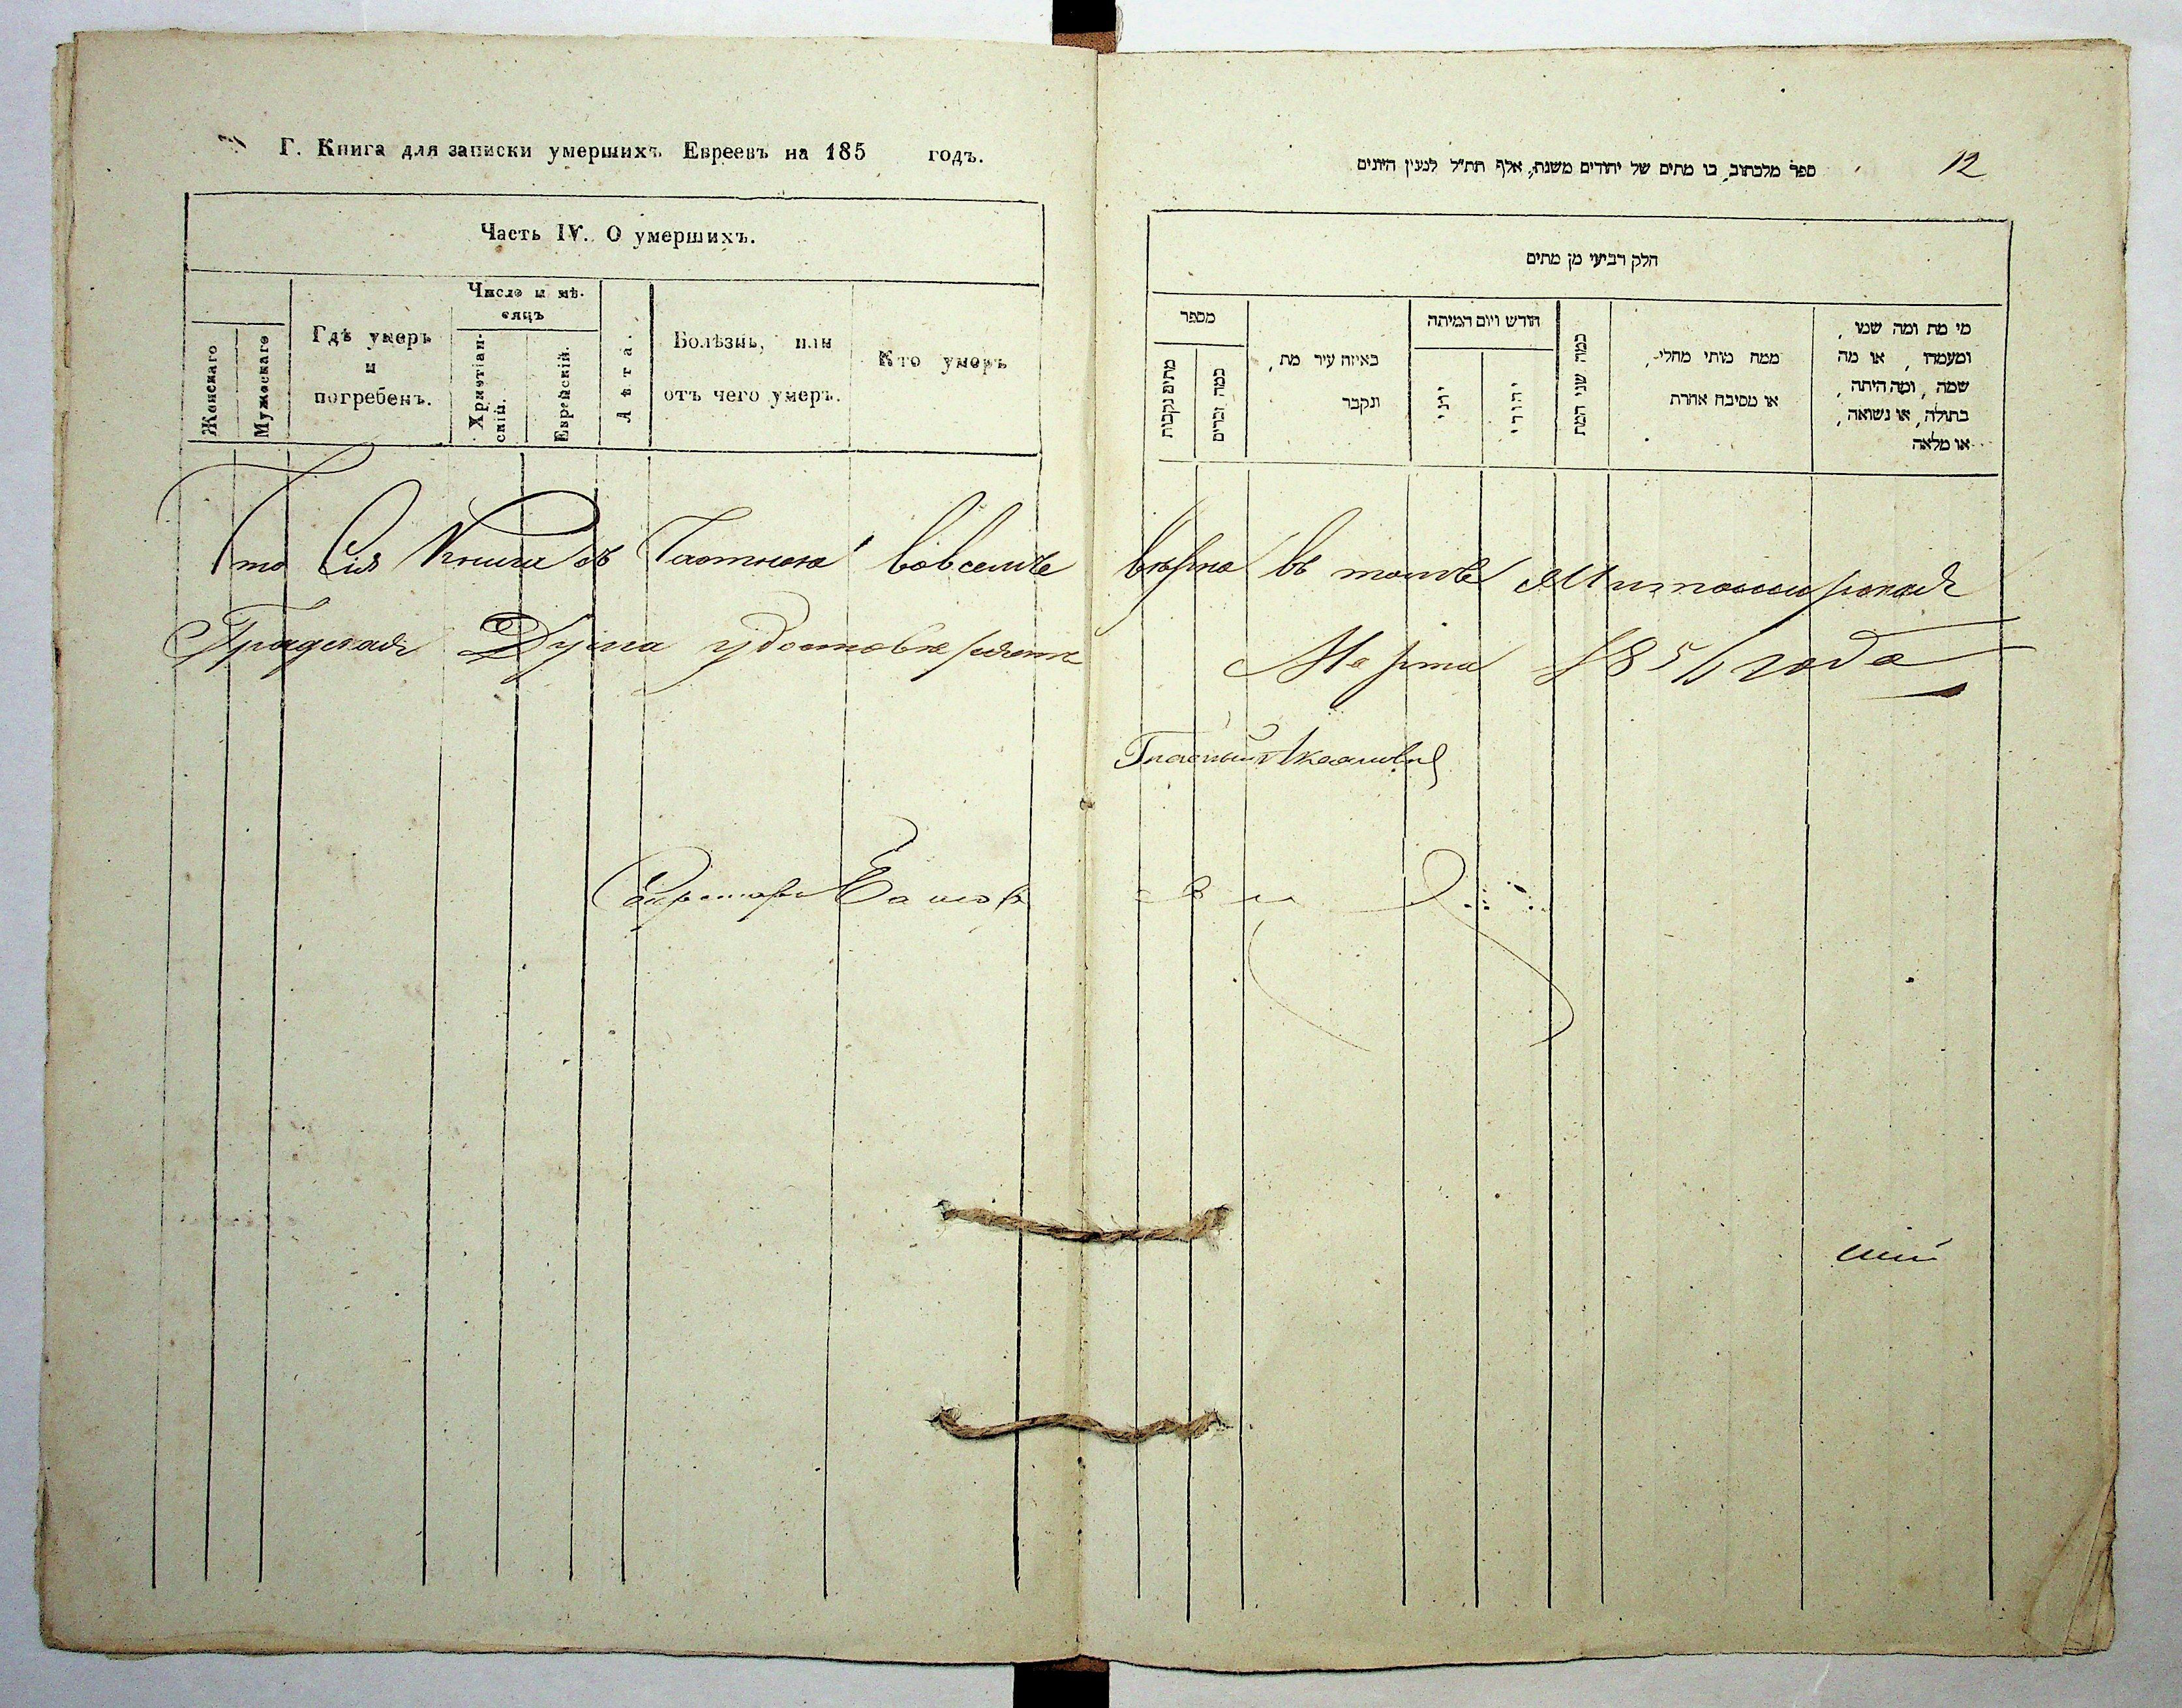 Г. Книга для записки умершихъ Евреевъ на 185 годъ.
Часть IV. О умершихъ.
Женскаго
Мужескаго
Гдѣ умеръ
и
погребенъ.
Число и мѣ-
сяцъ
Христіан-
скій.
Еврейскій.
Лѣта.
Болѣзнь, или
отъ чего умеръ.
Кто умеръ
12
ספר מלכתוב בו מתים של יהודים משנת אלף תת"ל למנין היונים
חלק רביעי מן מתים
מספר
מתים נקבות
כמה זכרים
באיזה עיר מת,
ונקבר
חודש ויום המיתה
יוני
יהודי
כמה שני המת
ממה מותי מחלי,
או מסיבה אחרת
מי מת ומה שמו,
ומעמדו, או מה
שמה, ומה היתה,
בתולה, או נשואה,
או מלאה
Что Сія Книга въ вовсемъ вѣрна въ томъ
Градская Дума удостовѣряетъ Марта 185 года
Гласный
Секретарь